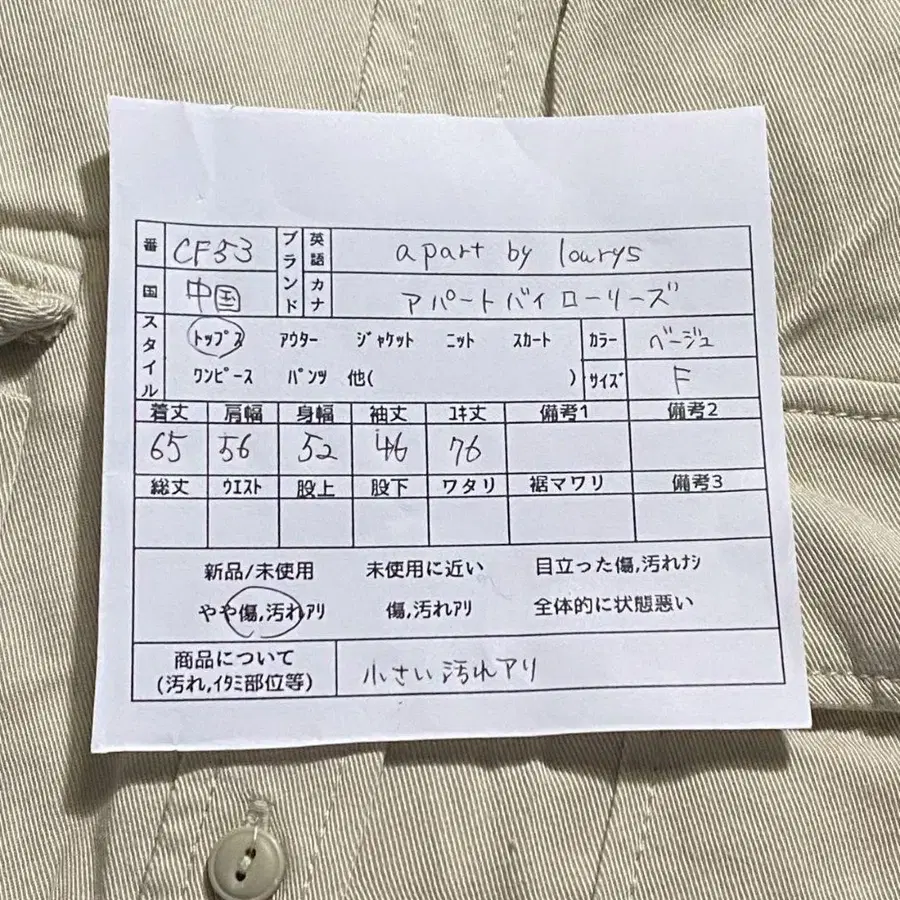 番 CF53 ブランド 英語 apart by lourys
国 中国 カナ アパートバイローリーズ
スタイル トップス アウター ジャケット ニット スカート カラー ベージュ
ワンピース パンツ 他( ) サイズ F
着丈 肩幅 身幅 袖丈 ユキ丈 備考1 備考2
65 56 52 46 76
総丈 ウエスト 股上 股下 ワタリ 裾マワリ 備考3
新品/未使用 未使用に近い 目立った傷,汚れナシ
やや傷,汚れアリ 傷,汚れアリ 全体的に状態悪い
商品について 小さい汚れアリ
(汚れ,イタミ部位等)